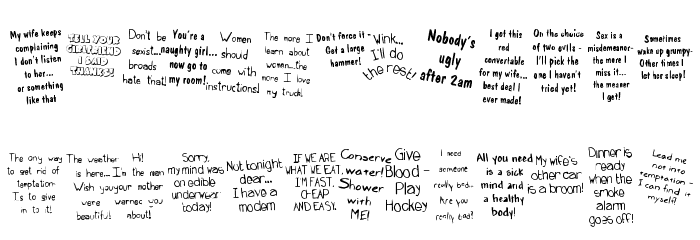 My wife keeps
complaining
I don't listen
to her...
or something
like that
TELL YOUR
GIRLFRIEND
I SAID
THANKS!
Don't be
sexist...
broads
hate that!
You're a
naughty girl...
now go to
my room!
Women
should
come with
instructions!
The more I
learn about
women...the
more I love
my truck!
Don't force it -
Get a large
hammer!
Wink...
I'll do
the rest!
Nobody's
ugly
after 2am
I got this
red
convertable
for my wife...
best deal I
ever made!
On the choice
of two evils -
I'll pick the
one I haven't
tried yet!
Sex is a
misdemeanor-
the more I
miss it...
the meaner
I get!
Sometimes
wake up grumpy-
Other times I
let her sleep!
The only way
to get rid of
temptation
Is to give
in to it!
The weather
is here...
Wish you
were
beautiful!
Hi!
I'm the man
your mother
warned you
about!
Sorry,
my mind was
on edible
underwear
today!
Not tonight
dear...
I have a
modem
IF WE ARE
WHAT WE EAT,
I'M FAST,
CHEAP
AND EASY.
Conserve
water!
Shower
with
ME!
Give
Blood -
Play
Hockey
I need
someone
really bad...
Are you
really bad?
All you need
is a sick
mind and a
healthy
body!
My wife's
other car
is a broom!
Dinner is
ready
when the
smoke
alarm
goes off!
Lead me
not into
temptation -
I can find it
myself!